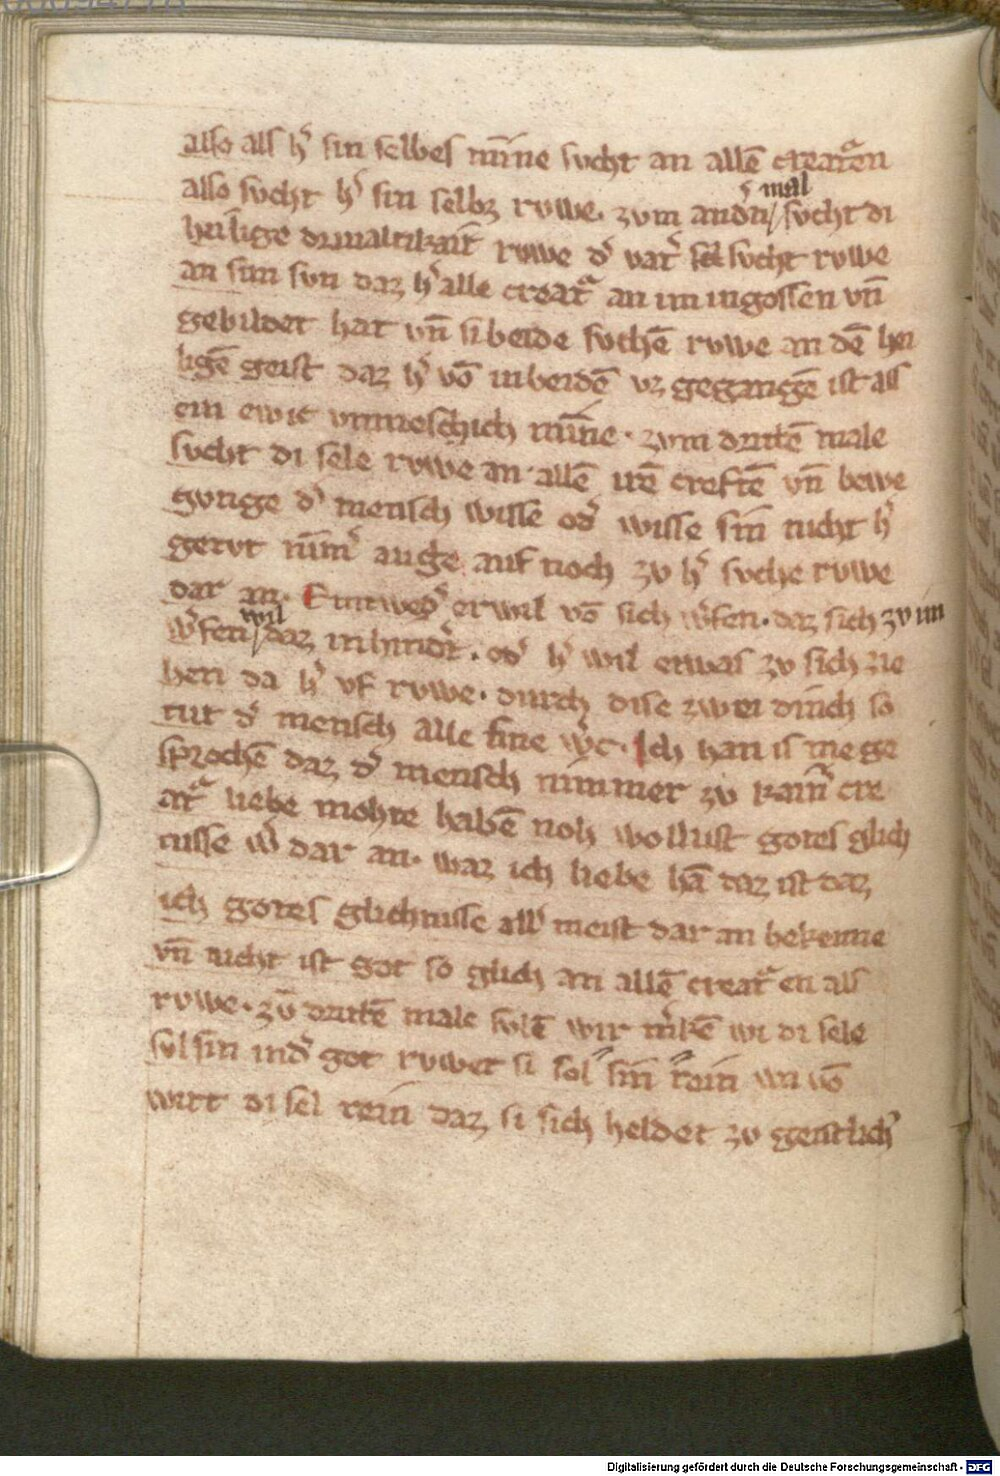 also als hͤ sin selbes mīne sucht an allē creatᷓen
also sucht hͤ sin selbz ruwe. zvm andn̄ mal sucht di
heilige driualtikait̄ ruwe dͤ vatͤ sol sucht ruwe
an sim svn daz hͤ alle creatᷓ an im ingossen vn̄
gebildet hat vn̄ si beide suchē ruwe an dē hei
ligē geist daz hͤ vō in beidē vz gegangē ist als
ein ewic vnmeschich mīne. zvm drittē male
sucht di sele ruwe an allē irē creftē vn̄ bewe
gvnge dͤ mensch wisse odͤ wisse sin nicht hͤ
getvt nīmͤ auge auf noch zv hͤ suche ruwe
dar an. Eintwedͤ er wil vō sich wͤfen. daz sich zv im
wͤfen wil daz in hindͤt. odͤ hͤ wil etwas zv sich zie
hen da hͤ vf ruwe. durch dise zwei dinch so
tut dͤ mensch alle sine wͤc. Ich han is me ge
sprochē daz dͤ mensch nimmer zv kainͤ cre
atᷓ liebe mohte habē noh wollust gotes glich
nisse wͤ dar an. waz ich liebe hā daz ist daz
ich gotes glichnisse allͤ meist dar an bekenne
vn̄ nicht ist got so glich an allē creatᷓen als
ruwe. zū drittē male svlē wir mͤkē wi di sele
svl sin indͤ got ruwet si sol sin rein wn vō
wirt di sel rein daz si sich heldet zv geistlichͤ
Digitalisierung gefördert durch die Deutsche Forschungsgemeinschaft - DFG